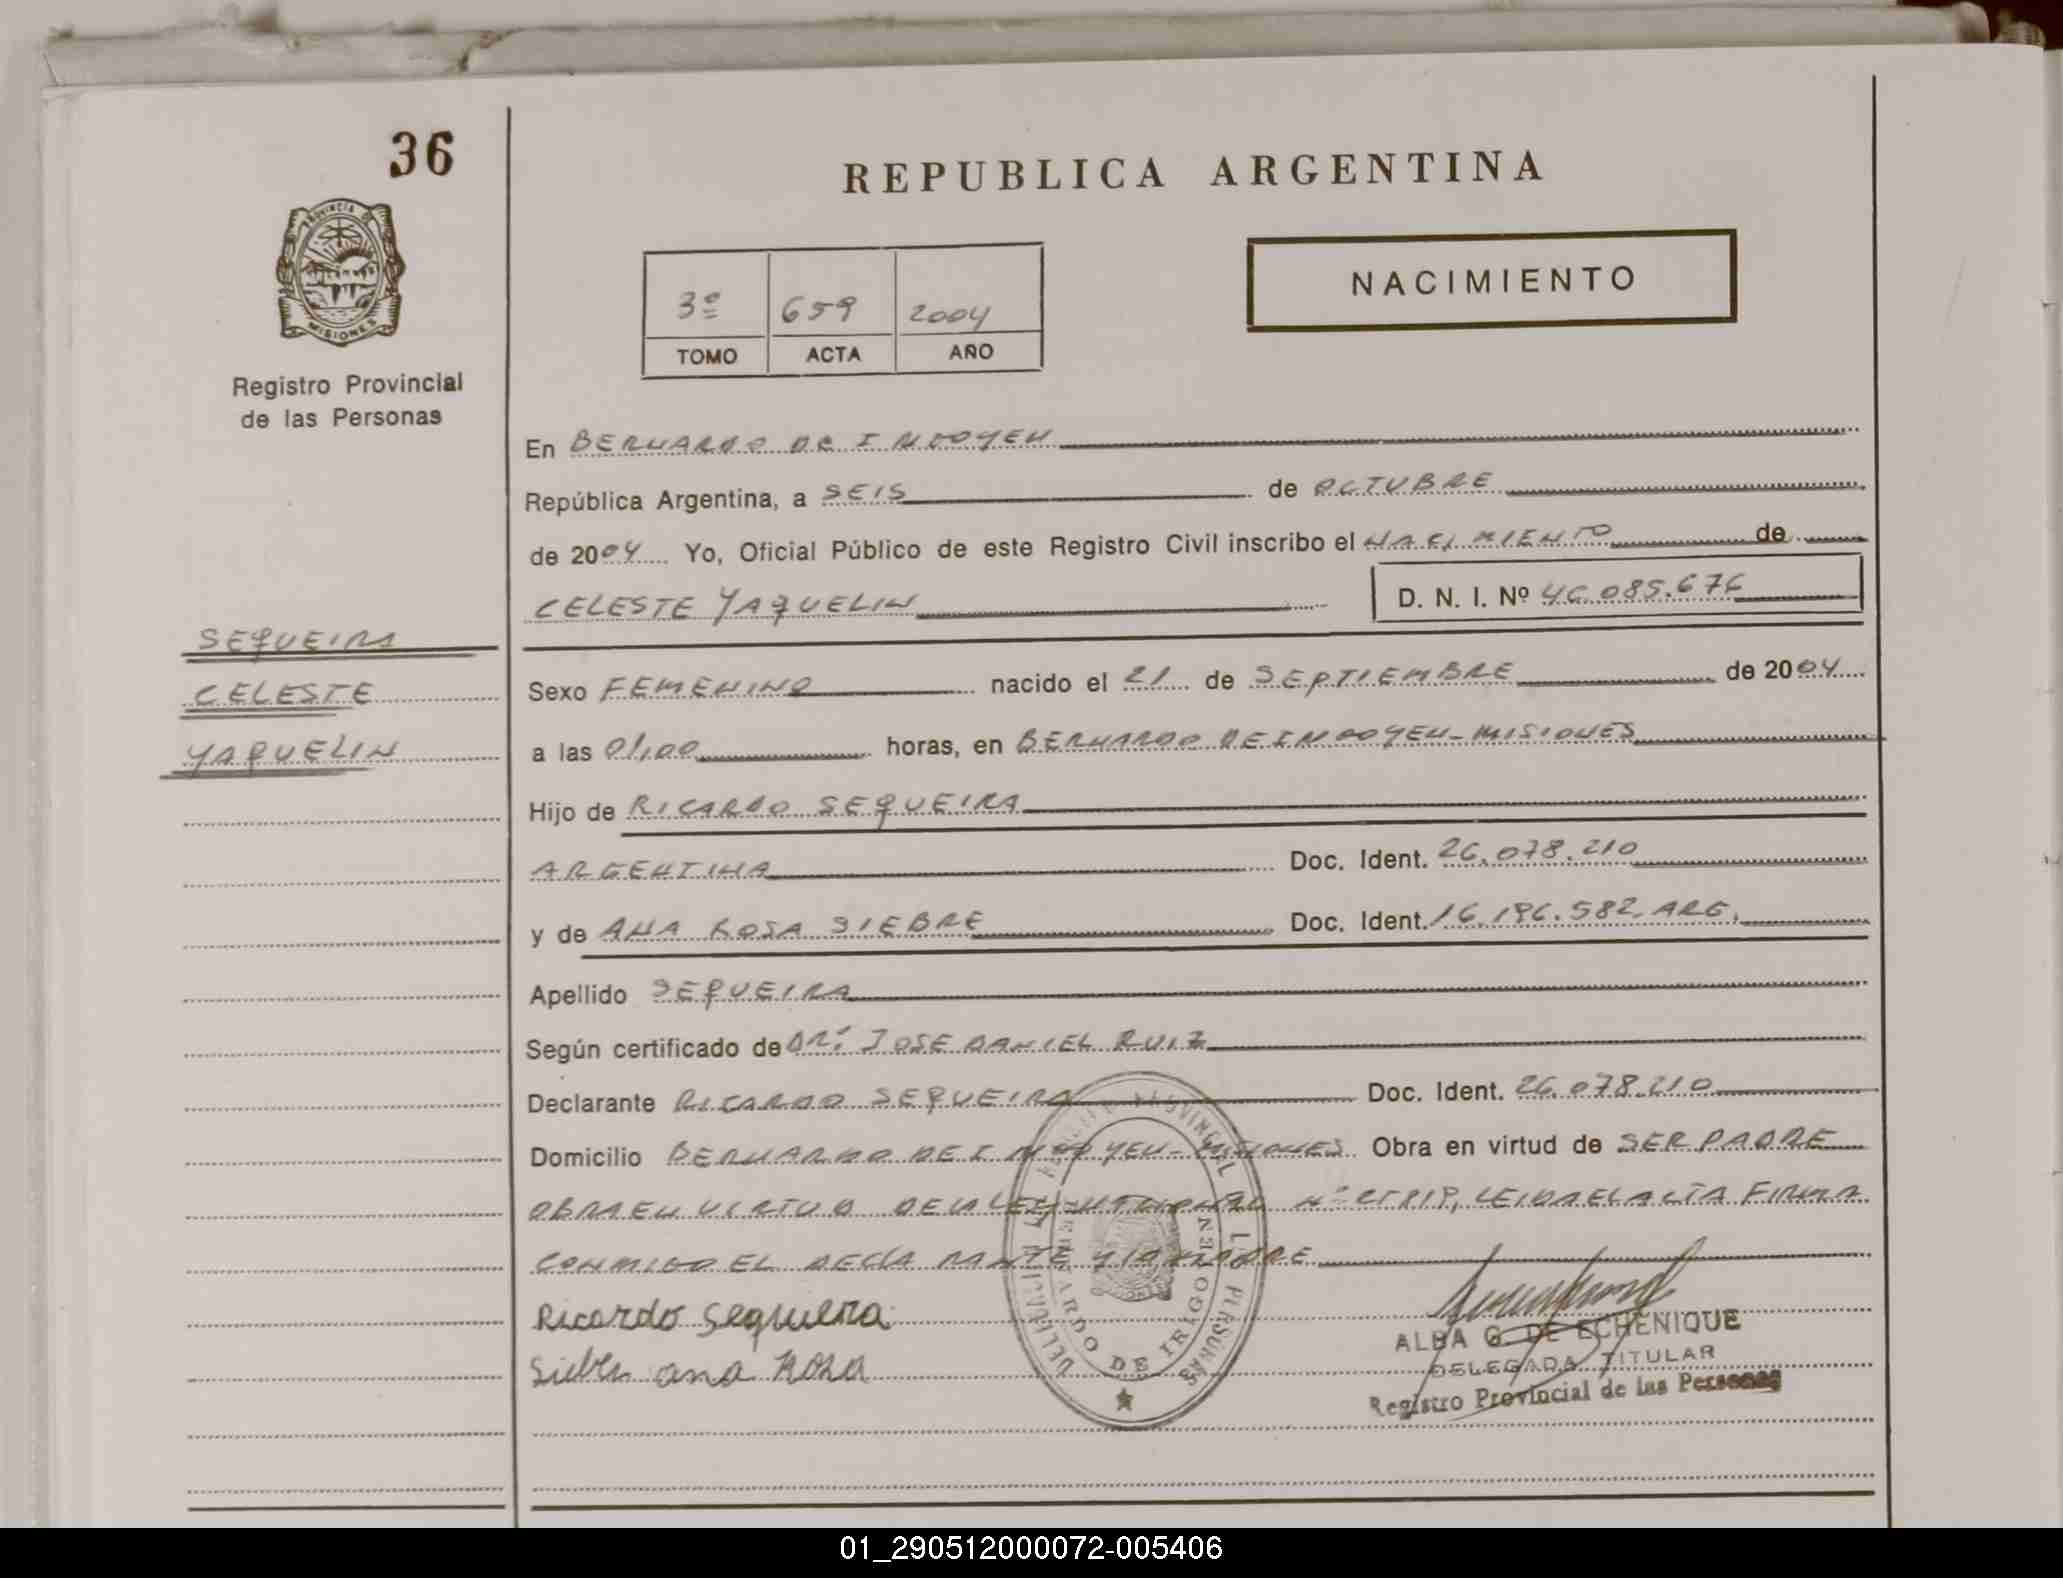 36
REPUBLICA ARGENTINA
PROVINCIA DE
MISIONES
Registro Provincial
de las Personas
3º 659 2004
TOMO ACTA AÑO
NACIMIENTO
En BERNARDO DE IRIGOYEN
República Argentina, a SEIS de OCTUBRE
de 2004 Yo, Oficial Público de este Registro Civil inscribo el NACIMIENTO de
CELESTE YAQUELIN D. N. I. Nº 46.085.676
SEQUEIRA
CELESTE
YAQUELIN
Sexo FEMENINO nacido el 21 de SEPTIEMBRE de 2004
a las 01,00 horas, en BERNARDO DE IRIGOYEN-MISIONES
Hijo de RICARDO SEQUEIRA
ARGENTINA Doc. Ident. 26.078.210
y de ANA ROSA SIEBRE Doc. Ident. 16.196.582 ARG.
Apellido SEQUEIRA
Según certificado de DR. JOSE DANIEL RUIZ
Declarante RICARDO SEQUEIRA Doc. Ident. 26.078.210
Domicilio BERNARDO DE IRIGOYEN-MISIONES Obra en virtud de SER PADRE
OBRA EN VIRTUD DE LA LEY Nº LEIDA EL ACTA FIRMA
CONMIGO EL DECLARANTE Y LA MADRE
Ricardo Sequeira
ana Rosa
DELEGACION REGISTRO PROVINCIAL DE LAS PERSONAS
BERNARDO DE IRIGOYEN
ALBA G. DE ECHENIQUE
DELEGADA TITULAR
Registro Provincial de las Personas
01_290512000072-005406